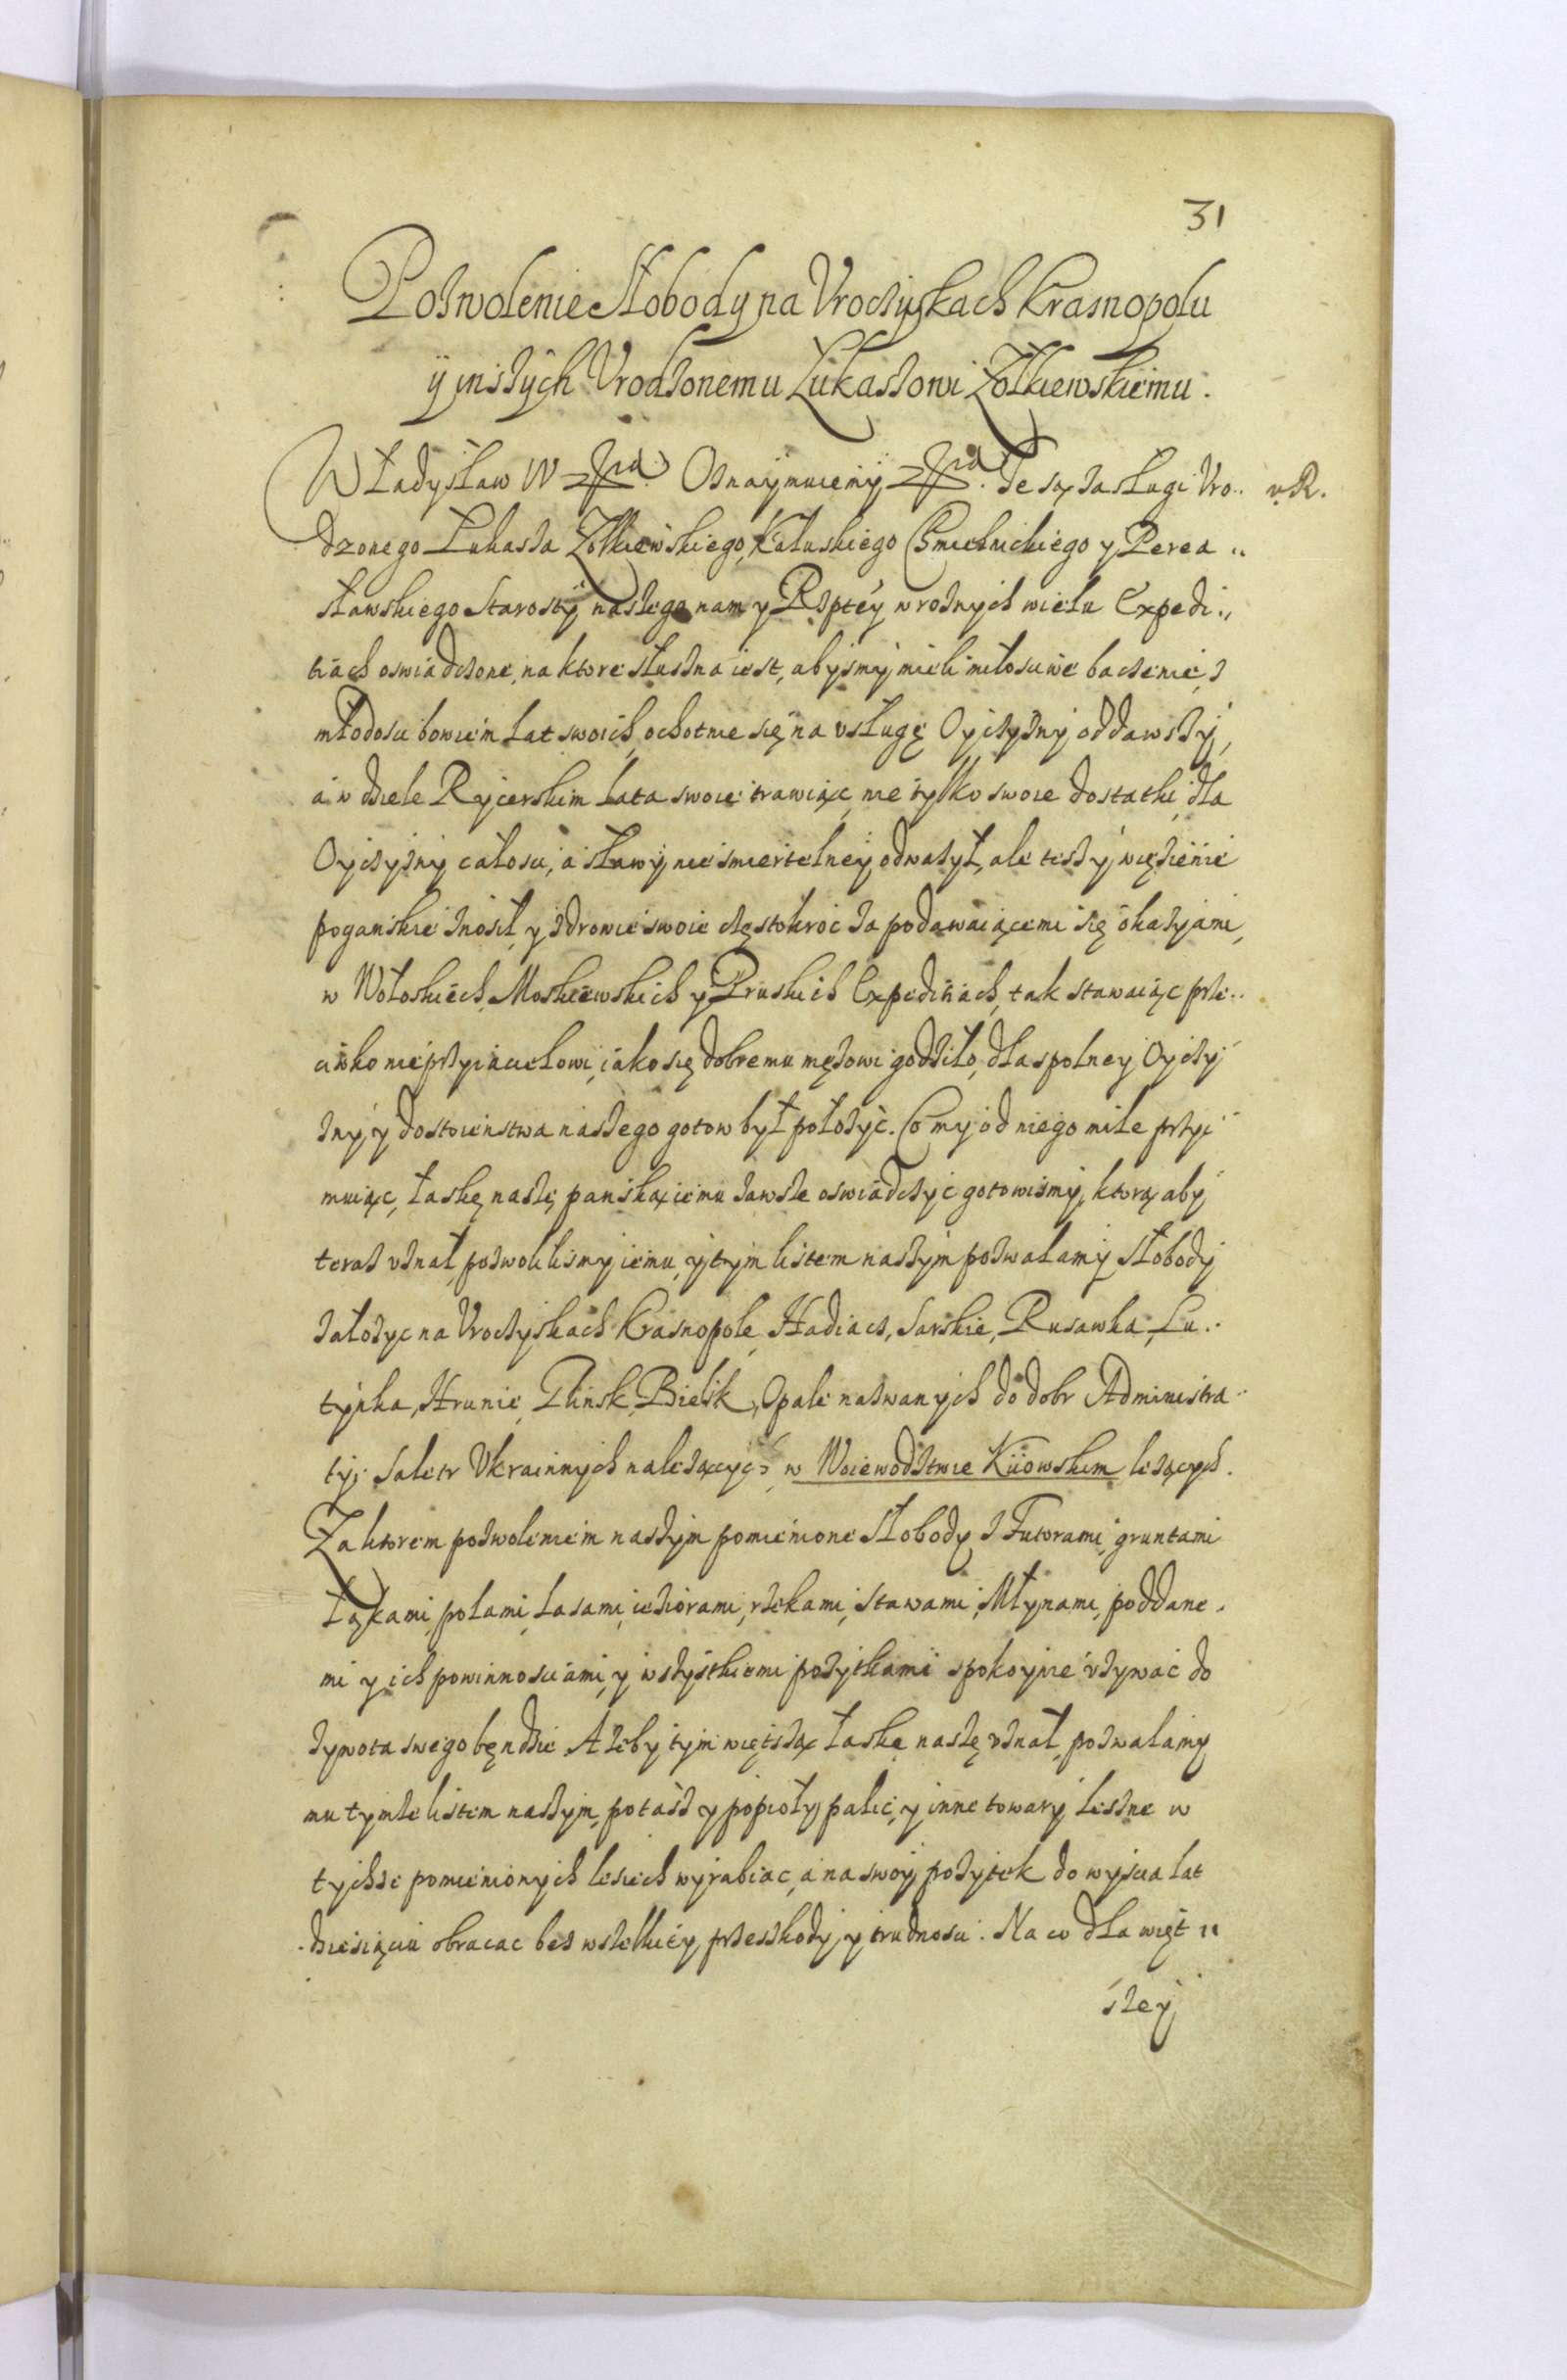 31
Pozwolenie Słobody na Vroczyskach Krasnopolu
ÿ inszÿch Vrodzonemu Łukaszowi Żołkiewskiemu.
Władysław IV Oznaymuiemÿ Że są zasługi Vro.. v.R.
dzonego Łukasza Żołkiewskiego, Kałuskiego Chmielnickiego y Perea..
sławskiego Starostÿ naszego nam y Rzptéy w roznych wielu Expedi..
tiach oswiadczone, na ktore słuszna iest, abysmÿ mieli miłosciwe baczenie, z
młodosci bowiem lat swoich, ochotnie się na vsługę Oyczyznÿ oddawszÿ,
a w dziele Rycerskim lata swoie trawiąc, nie tylko swoie dostatki dla
Oyczyznÿ całosci, a sławÿ niesmiertelneÿ odwazył, ale tesz ÿ więzienie
poganskie znosił, y zdrowie swoie częstokroc za podawaiącemi się okazyami,
w Wołoskich, Moskiewskich y Pruskich Expeditiach, tak stawaiąc prze..
ciwko nieprzyiacielowi, iako się dobremu męzowi godziło, dla spolney Oyczy
zny, y dostoienstwa naszego gotow był połozyc. Co my od niego mile przyi
muiąc, łaskę naszę panską iemu zawsze oswiadczyc gotowismy, ktorą aby
teraz vznał, pozwolilismy iemu, ÿ tym listem naszym pozwalamy Słobody
załozyc na Vroczyskach Krasnopole, Hadiacz, Sarskie, Rusawka, Lu..
tynka, Hrunie, Plinsk, Bielsk, Opale nazwanych do dobr Administra..
tyi Saletr Vkrainnych nalezących, w Woiewodztwie Kiiowskim lezących.
Za ktorem pozwoleniem naszym pomienione Słobody z Futorami, gruntami
łąkami, polami, lasami, ieziorami, rzekami, stawami, Młynami, poddane.
mi y ich powinnosciami, y wszystkiemi pozytkami spokoynie vzywac do
zywota swego bęndzie. A zeby tym więtszą łaskę naszę vznał, pozwalamy
mu tymze listem naszym, potasz y popioły palic, y inne towary lesne w
tychze pomienionych lesiech wyrabiac, a na swoy pozytek do wyscia lat
dziesiąciu obracac bez wszelkiey przeszkody, y trudnosci. Na co dla więt..
szey